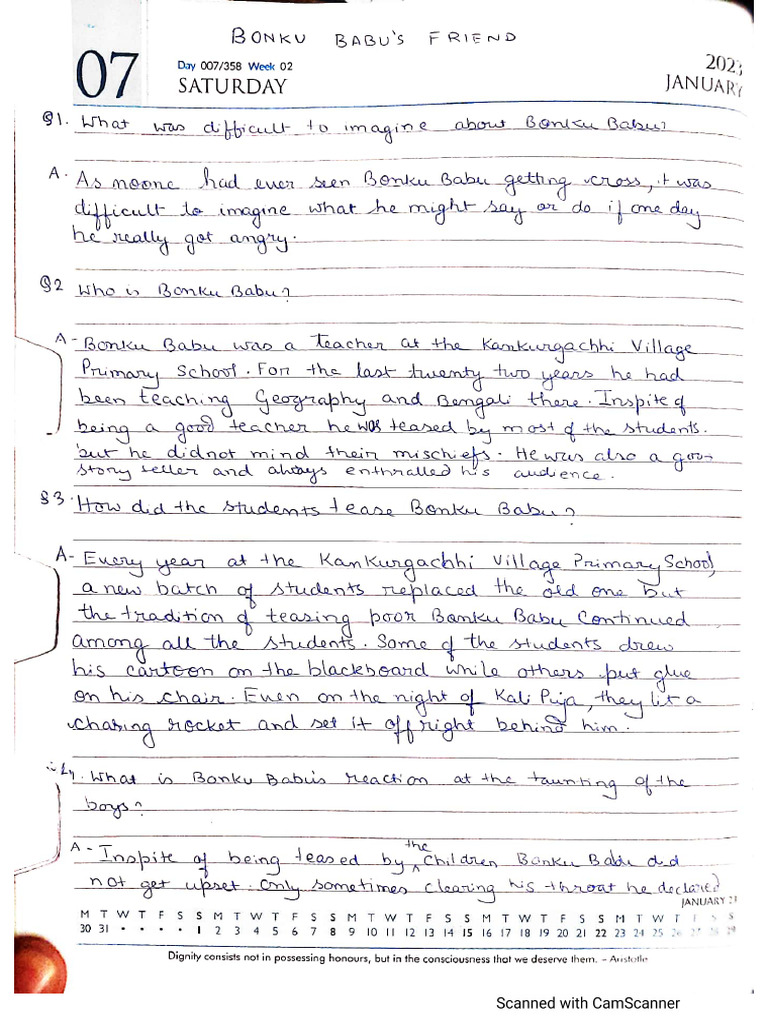 BONKU BABU'S FRIEND
07
Day 007/358 Week 02
SATURDAY
2023
JANUARY
Q1. What was difficult to imagine about Bonku Babu?
A. As noone had ever seen Bonku Babu getting cross, it was
difficult to imagine what he might say or do if one day
he really got angry.
Q2 Who is Bonku Babu?
A- Bonku Babu was a teacher at the Kankurgachhi Village
Primary School. For the last twenty two years he had
been teaching Geography and Bengali there. Inspite of
being a good teacher he was teased by most of the students.
but he didnot mind their mischiefs. He was also a goo
story teller and always enthralled his audience.
Q3. How did the students tease Bonku Babu?
A- Every year at the Kankurgachhi Village Primary School,
a new batch of students replaced the old one but
the tradition of teasing poor Bonku Babu continued
among all the students. Some of the students drew
his cartoon on the blackboard while others put glue
on his chair. Even on the night of Kali Puja, they lit a
chasing rocket and set it off right behind him.
4. What is Bonku Babu's reaction at the taunting of the
boys?
A- Inspite of being teased by the children Bonku Babu did
not get upset. Only sometimes clearing his throat he declared
JANUARY 23
M T W T F S S M T W T F S S M T W T F S S M T W T F S S M T W T F S S
30 31 • • • • 1 2 3 4 5 6 7 8 9 10 11 12 13 14 15 16 17 18 19 20 21 22 23 24 25 26 27 28 29
Dignity consists not in possessing honours, but in the consciousness that we deserve them. – Aristotle
Scanned with CamScanner